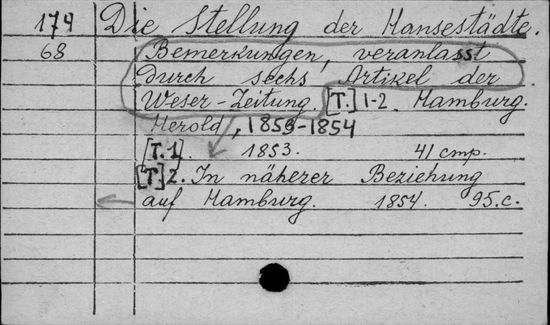 174 Die Stellung der Hansestädte.
68 Bemerkungen, veranlasst
durch sechs Artikel der
Weser-Zeitung. [T.] 1-2. Hamburg.
Herold, 1853-1854
[T. 1]. 1853. 41 cmp.
[T.] 2. In näherer Beziehung
auf Hamburg. 1854. 95.c.